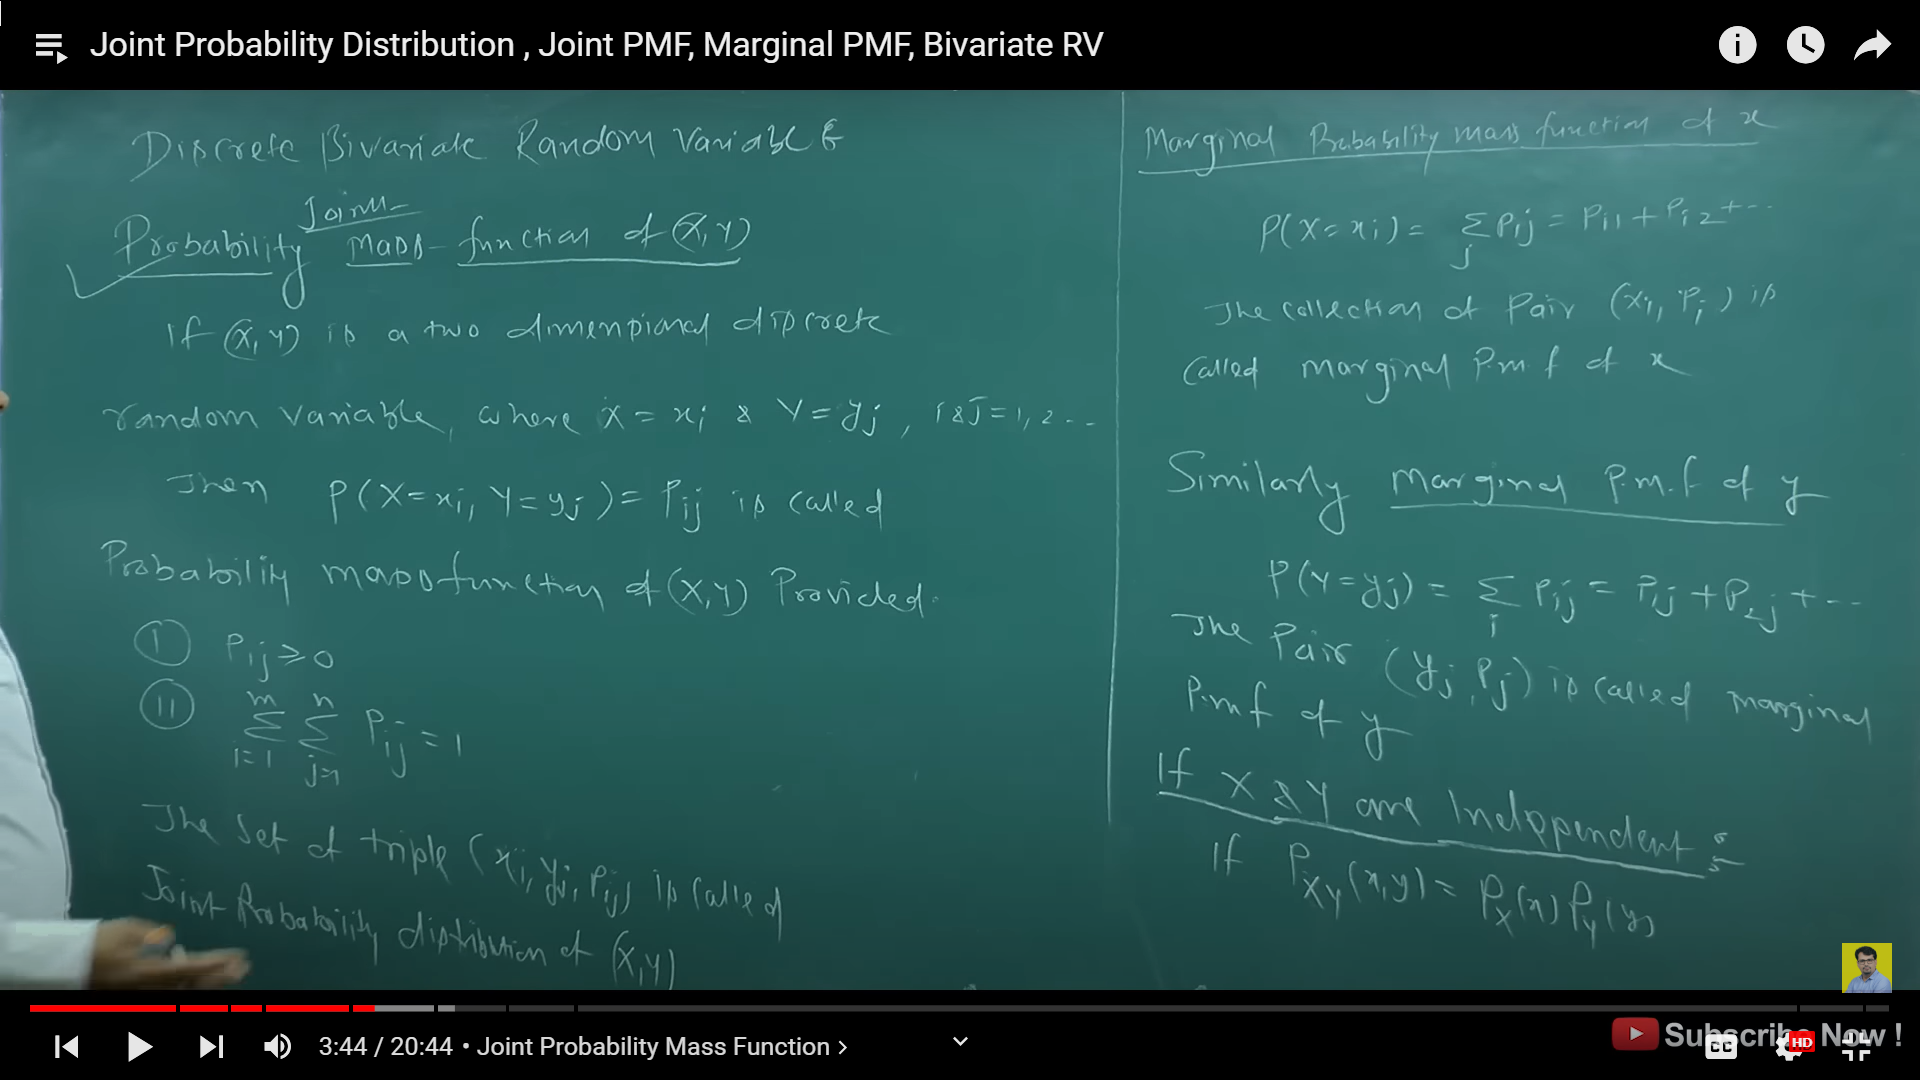 Joint Probability Distribution , Joint PMF, Marginal PMF, Bivariate RV
Discrete Bivariate Random Variable
Joint
Probability mass function of (X,Y)
If (X,Y) is a two dimensional discrete
random variable, where X = xi & Y = yj , i & j = 1, 2 ...
Then P(X=xi, Y=yj) = Pij is called
Probability mass function of (X,Y) Provided.
(I) Pij ≥ 0
(II) m∑i=1 n∑j=1 Pij = 1
The set of triple (xi, yj, Pij) is called
Joint Probability distribution of (X,Y)
Marginal Probability mass function of x
P(X=xi) = ∑j Pij = Pi1 + Pi2 + ...
The collection of Pair (xi, Pi) is
called marginal P.m.f of x
Similarly marginal P.m.f of y
P(Y=yj) = ∑i Pij = P1j + P2j + ...
The Pair (yj, Pj) is called marginal
P.m.f of y
If X & Y are Independent :
If PXY(x,y) = PX(x) PY(y)
Subscribe Now !
3:44 / 20:44 • Joint Probability Mass Function >
CC
HD